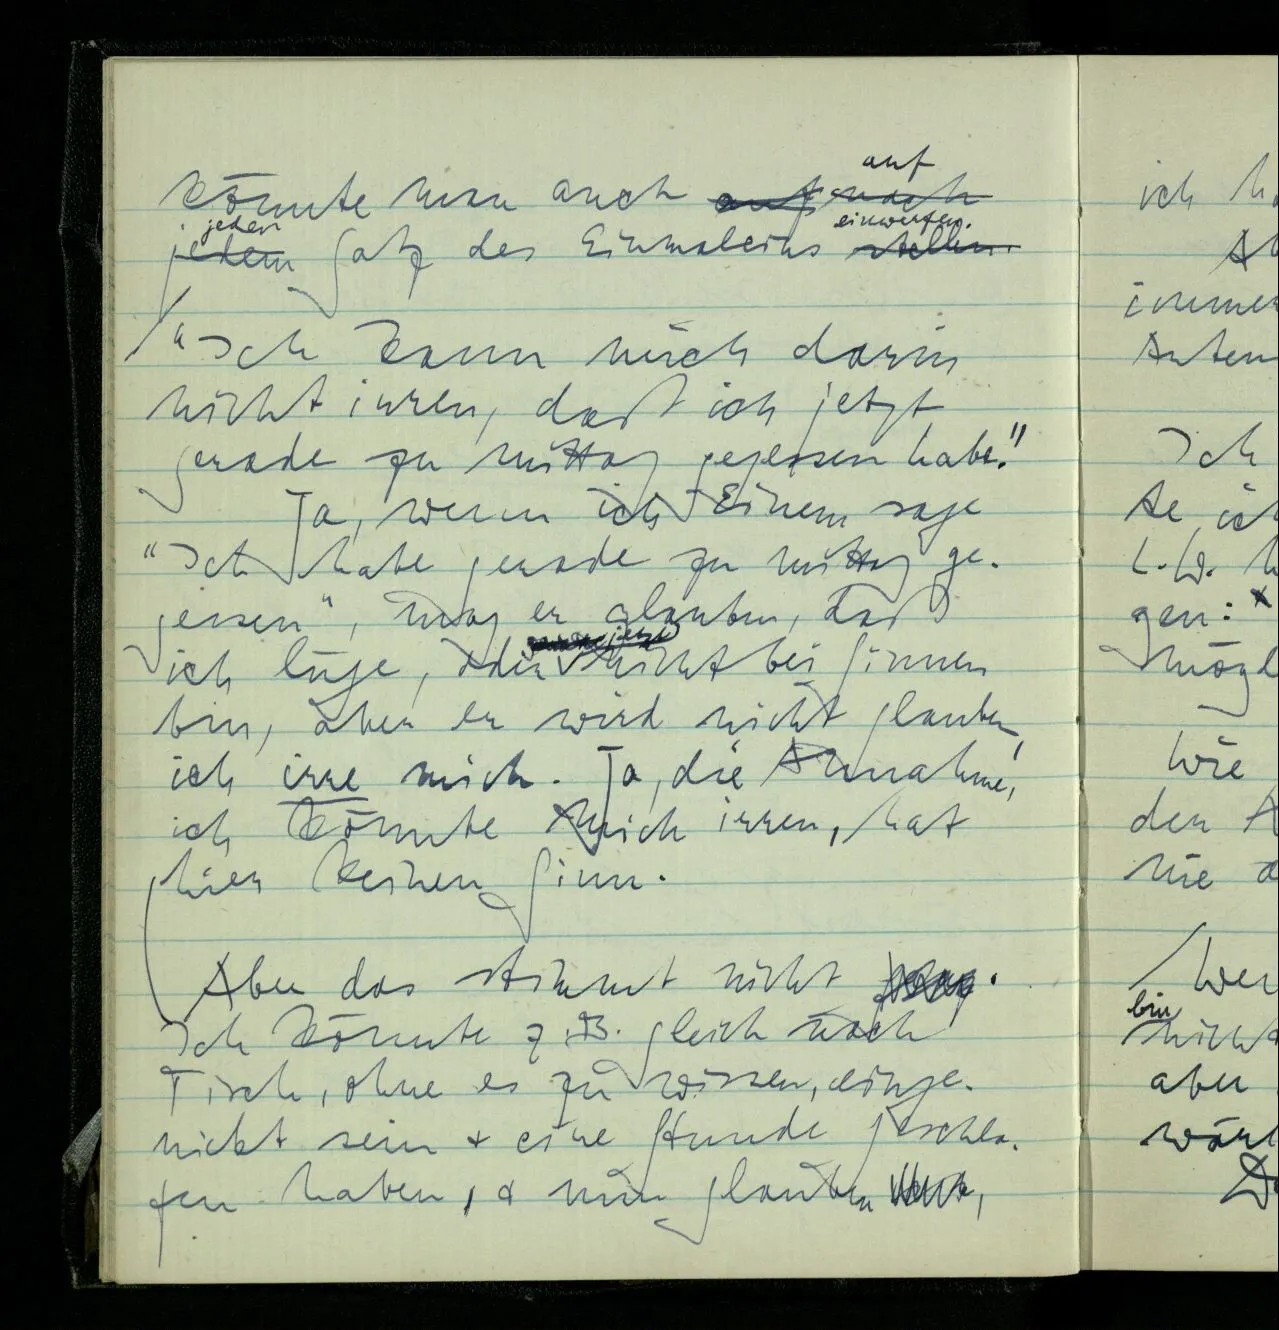 könnte man auch auf nach auf
jedem jeden Satz des Einmaleins stellen. einwerfen.
/ "Ich kann mich darin
nicht irren, daß ich jetzt
gerade zu mittag gegessen habe."
Ja, wenn ich Einem sage
"Ich habe gerade zu mittag ge-
gessen", mag er glauben, daß
ich lüge, oder jetzt nicht bei Sinnen
bin, aber er wird nicht glauben,
ich irre mich. Ja, die Annahme,
ich könnte mich irren, hat
hier keinen Sinn.
Aber das stimmt nicht.
Ich könnte z.B. gleich nach
Tisch, ohne es zu wissen, einge-
nickt sein & eine Stunde geschla-
fen haben, & nun glauben,
ich
A
immer
Anten
Ich
te ich
L.W.
gen:
mögl
Wie
den A
nie
/ Wen
bin
nicht
aber
wär